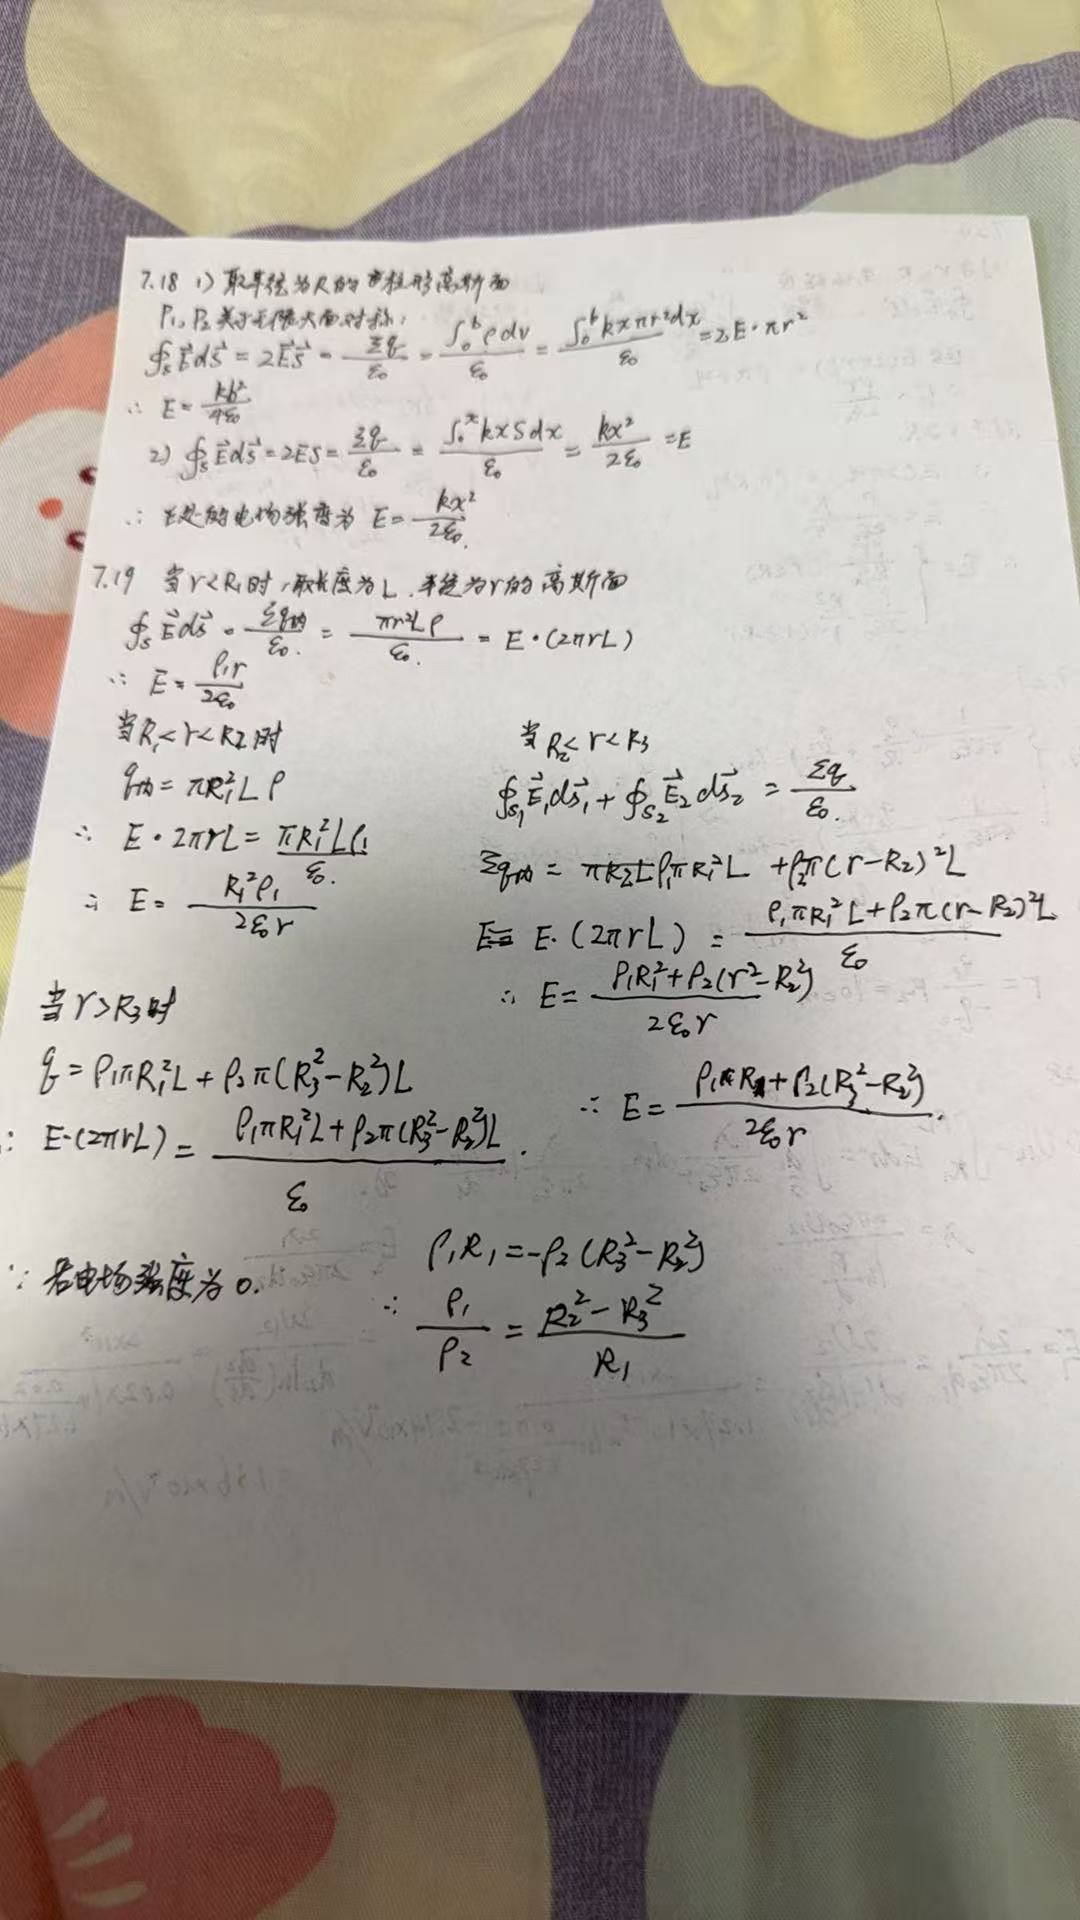 7.18 1) 取半径为R的圆柱形高斯面
P₁, P₂关于无限大面对称,
∮ₛE⃗ds⃗ = 2E⃗S⃗ = Σq/ε₀ = ∫₀ᵇρdv/ε₀ = ∫₀ᵇkxπr²dx/ε₀ = 2E·πr²
∴ E = kb²/4ε₀
2) ∮ₛE⃗ds⃗ = 2ES = Σq/ε₀ = ∫₀ˣkxSdx/ε₀ = kx²/2ε₀ = E
∴ 处的电场强度为 E = kx²/2ε₀.
7.19 当r<R₁时,取长度为L.半径为r的高斯面
∮ₛE⃗ds⃗ = Σq内/ε₀. = πr²Lρ/ε₀. = E·(2πrL)
∴ E = ρ₁r/2ε₀
当R₁<r<R₂时
q内 = πR₁²Lρ
∴ E·2πrL = πR₁²Lρ₁/ε₀.
∴ E = R₁²ρ₁/2ε₀r
当R₂<r<R₃
∮ₛ₁E⃗₁ds⃗₁ + ∮ₛ₂E⃗₂ds⃗₂ = Σq/ε₀.
Σq内 = ρ₁πR₁²L + ρ₂π(r-R₂)²L
E·(2πrL) = ρ₁πR₁²L+ρ₂π(r-R₂)²L/ε₀
∴ E = ρ₁R₁²+ρ₂(r²-R₂²)/2ε₀r
当r>R₃时
q = ρ₁πR₁²L + ρ₂π(R₃²-R₂²)L
∴ E·(2πrL) = ρ₁πR₁²L+ρ₂π(R₃²-R₂²)L/ε₀.
∴ E = ρ₁R₁+ρ₂(R₃²-R₂²)/2ε₀r.
∵ 若电场强度为0.
ρ₁R₁ = -ρ₂(R₃²-R₂²)
∴ ρ₁/ρ₂ = R₂²-R₃²/R₁